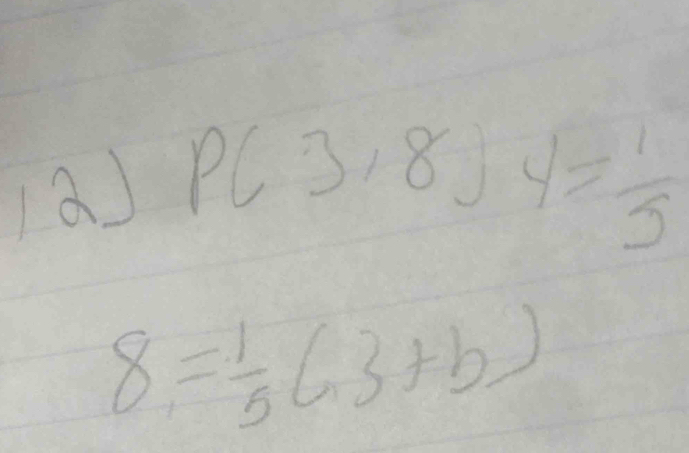 12) P(3,8) y=1/5
8=1/5(3+b)